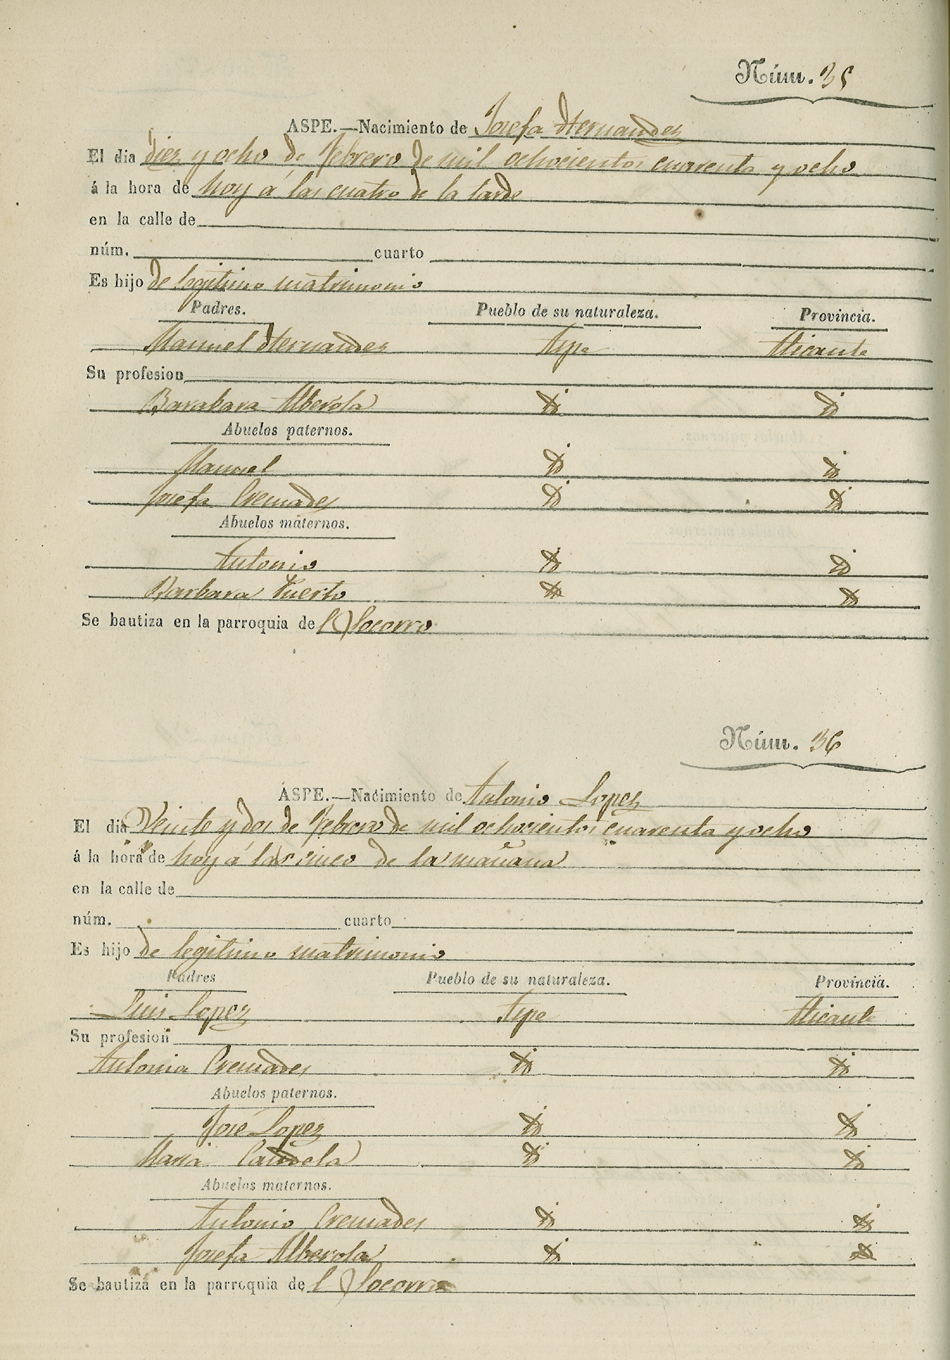 Núm. 35
ASPE.—Nacimiento de Josefa Hernandez
El dia diez y ocho de febrero de mil ochocientos cuarenta y ocho
á la hora de hoy á las cuatro de la tarde
en la calle de
núm. cuarto
Es hijo de legitimo matrimonio
Padres. Pueblo de su naturaleza. Provincia.
Manuel Hernandez Aspe Alicante
Su profesion
Barabara Alberola id id
Abuelos paternos.
Manuel id id
Josefa Cremades id id
Abuelos maternos.
Antonio id id
Barbara Puerto id id
Se bautiza en la parroquia del Socorro
Núm. 36
ASPE.—Nacimiento de Antonio Lopez
El dia Veinte y dos de febrero de mil ochocientos cuarenta y ocho
á la hora de hoy á las cinco de la mañana
en la calle de
núm. cuarto
Es hijo de legitimo matrimonio
Padres Pueblo de su naturaleza. Provincia.
Luis Lopez Aspe Alicante
Su profesion
Antonia Cremades id id
Abuelos paternos.
José Lopez id id
Maria Candela id id
Abuelos maternos.
Antonio Cremades id id
Josefa Alberola id id
Se bautiza en la parroquia del Socorro